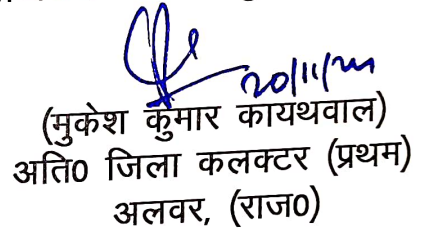 20/11/24
(मुकेश कुमार कायथवाल)
अति0 जिला कलक्टर (प्रथम)
अलवर, (राज0)